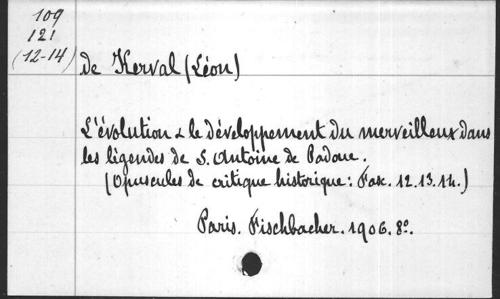 109
121
(12-14)
de Kerval (Léon)
L'évolution & le développement du merveilleux dans
les légendes de S. Antoine de Padoue.
(Opuscules de critique historique: Fasc. 12.13.14.)
Paris. Fischbacher. 1906. 8º.